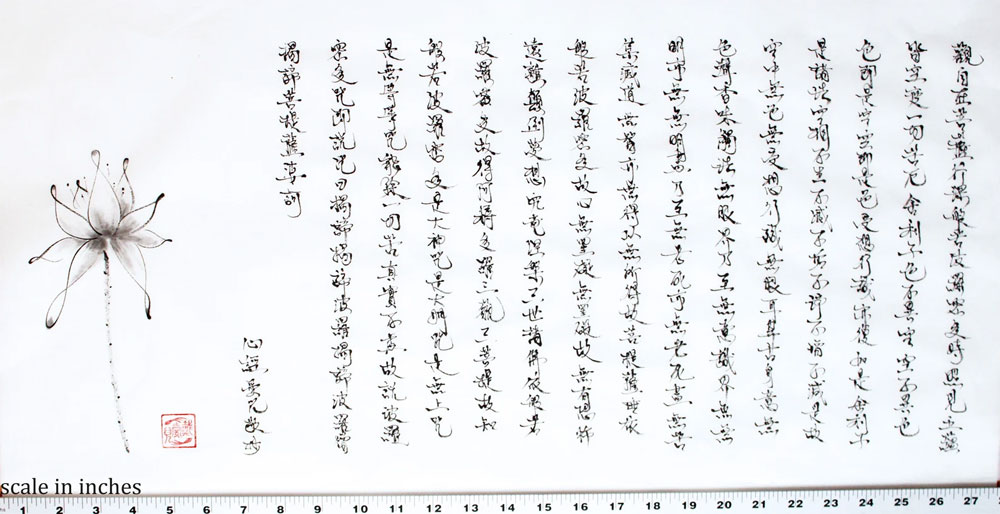 觀自在菩薩行深般若波羅蜜多時照見五蘊
皆空度一切苦厄舍利子色不異空空不異色
色即是空空即是色受想行識亦復如是舍利子
是諸法空相不生不滅不垢不淨不增不減是故
空中無色無受想行識無眼耳鼻舌身意無
色聲香味觸法無眼界乃至無意識界無無
明亦無無明盡乃至無老死亦無老死盡無苦
集滅道無智亦無得以無所得故菩提薩埵依
般若波羅蜜多故心無罣礙無罣礙故無有恐怖
遠離顛倒夢想究竟涅槃三世諸佛依般若
波羅蜜多故得阿耨多羅三藐三菩提故知
般若波羅蜜多是大神咒是大明咒是無上咒
是無等等咒能除一切苦真實不虛故說波羅
蜜多咒即說咒曰揭諦揭諦波羅揭諦波羅僧
揭諦菩提薩婆訶
心經
scale in inches
1 2 3 4 5 6 7 8 9 10 11 12 13 14 15 16 17 18 19 20 21 22 23 24 25 26 27